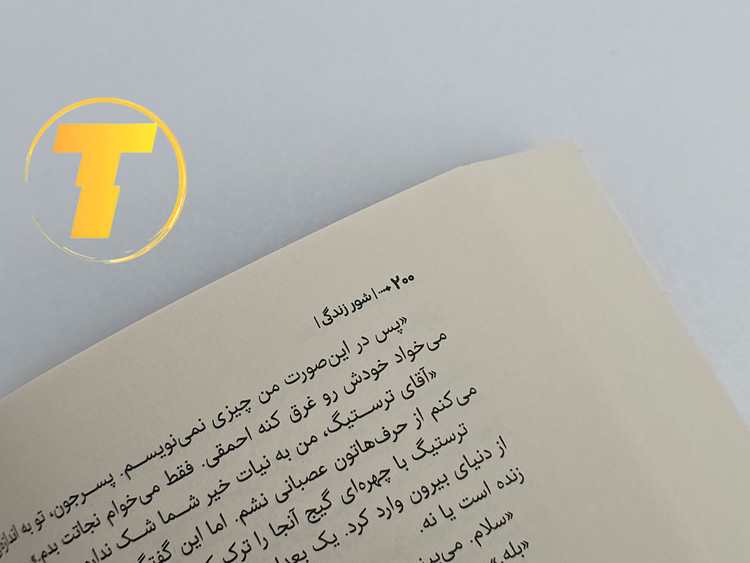 T
۲۰۰ | شور زندگی |
«پس در این‌صورت من چیزی نمی‌نویسم. پسرجون، تو به اندازه‌
می‌خواد خودش رو غرق کنه احمقی. فقط می‌خوام نجاتت بدم.»
«آقای ترستیگ، من به نیات خیر شما شک ندارم
می‌کنم از حرف‌هاتون عصبانی نشم. اما این
ترستیگ با چهره‌ای گیج آنجا را ترک
از دنیای بیرون وارد کرد. یک
زنده است یا نه.
«سلام.
«بله.